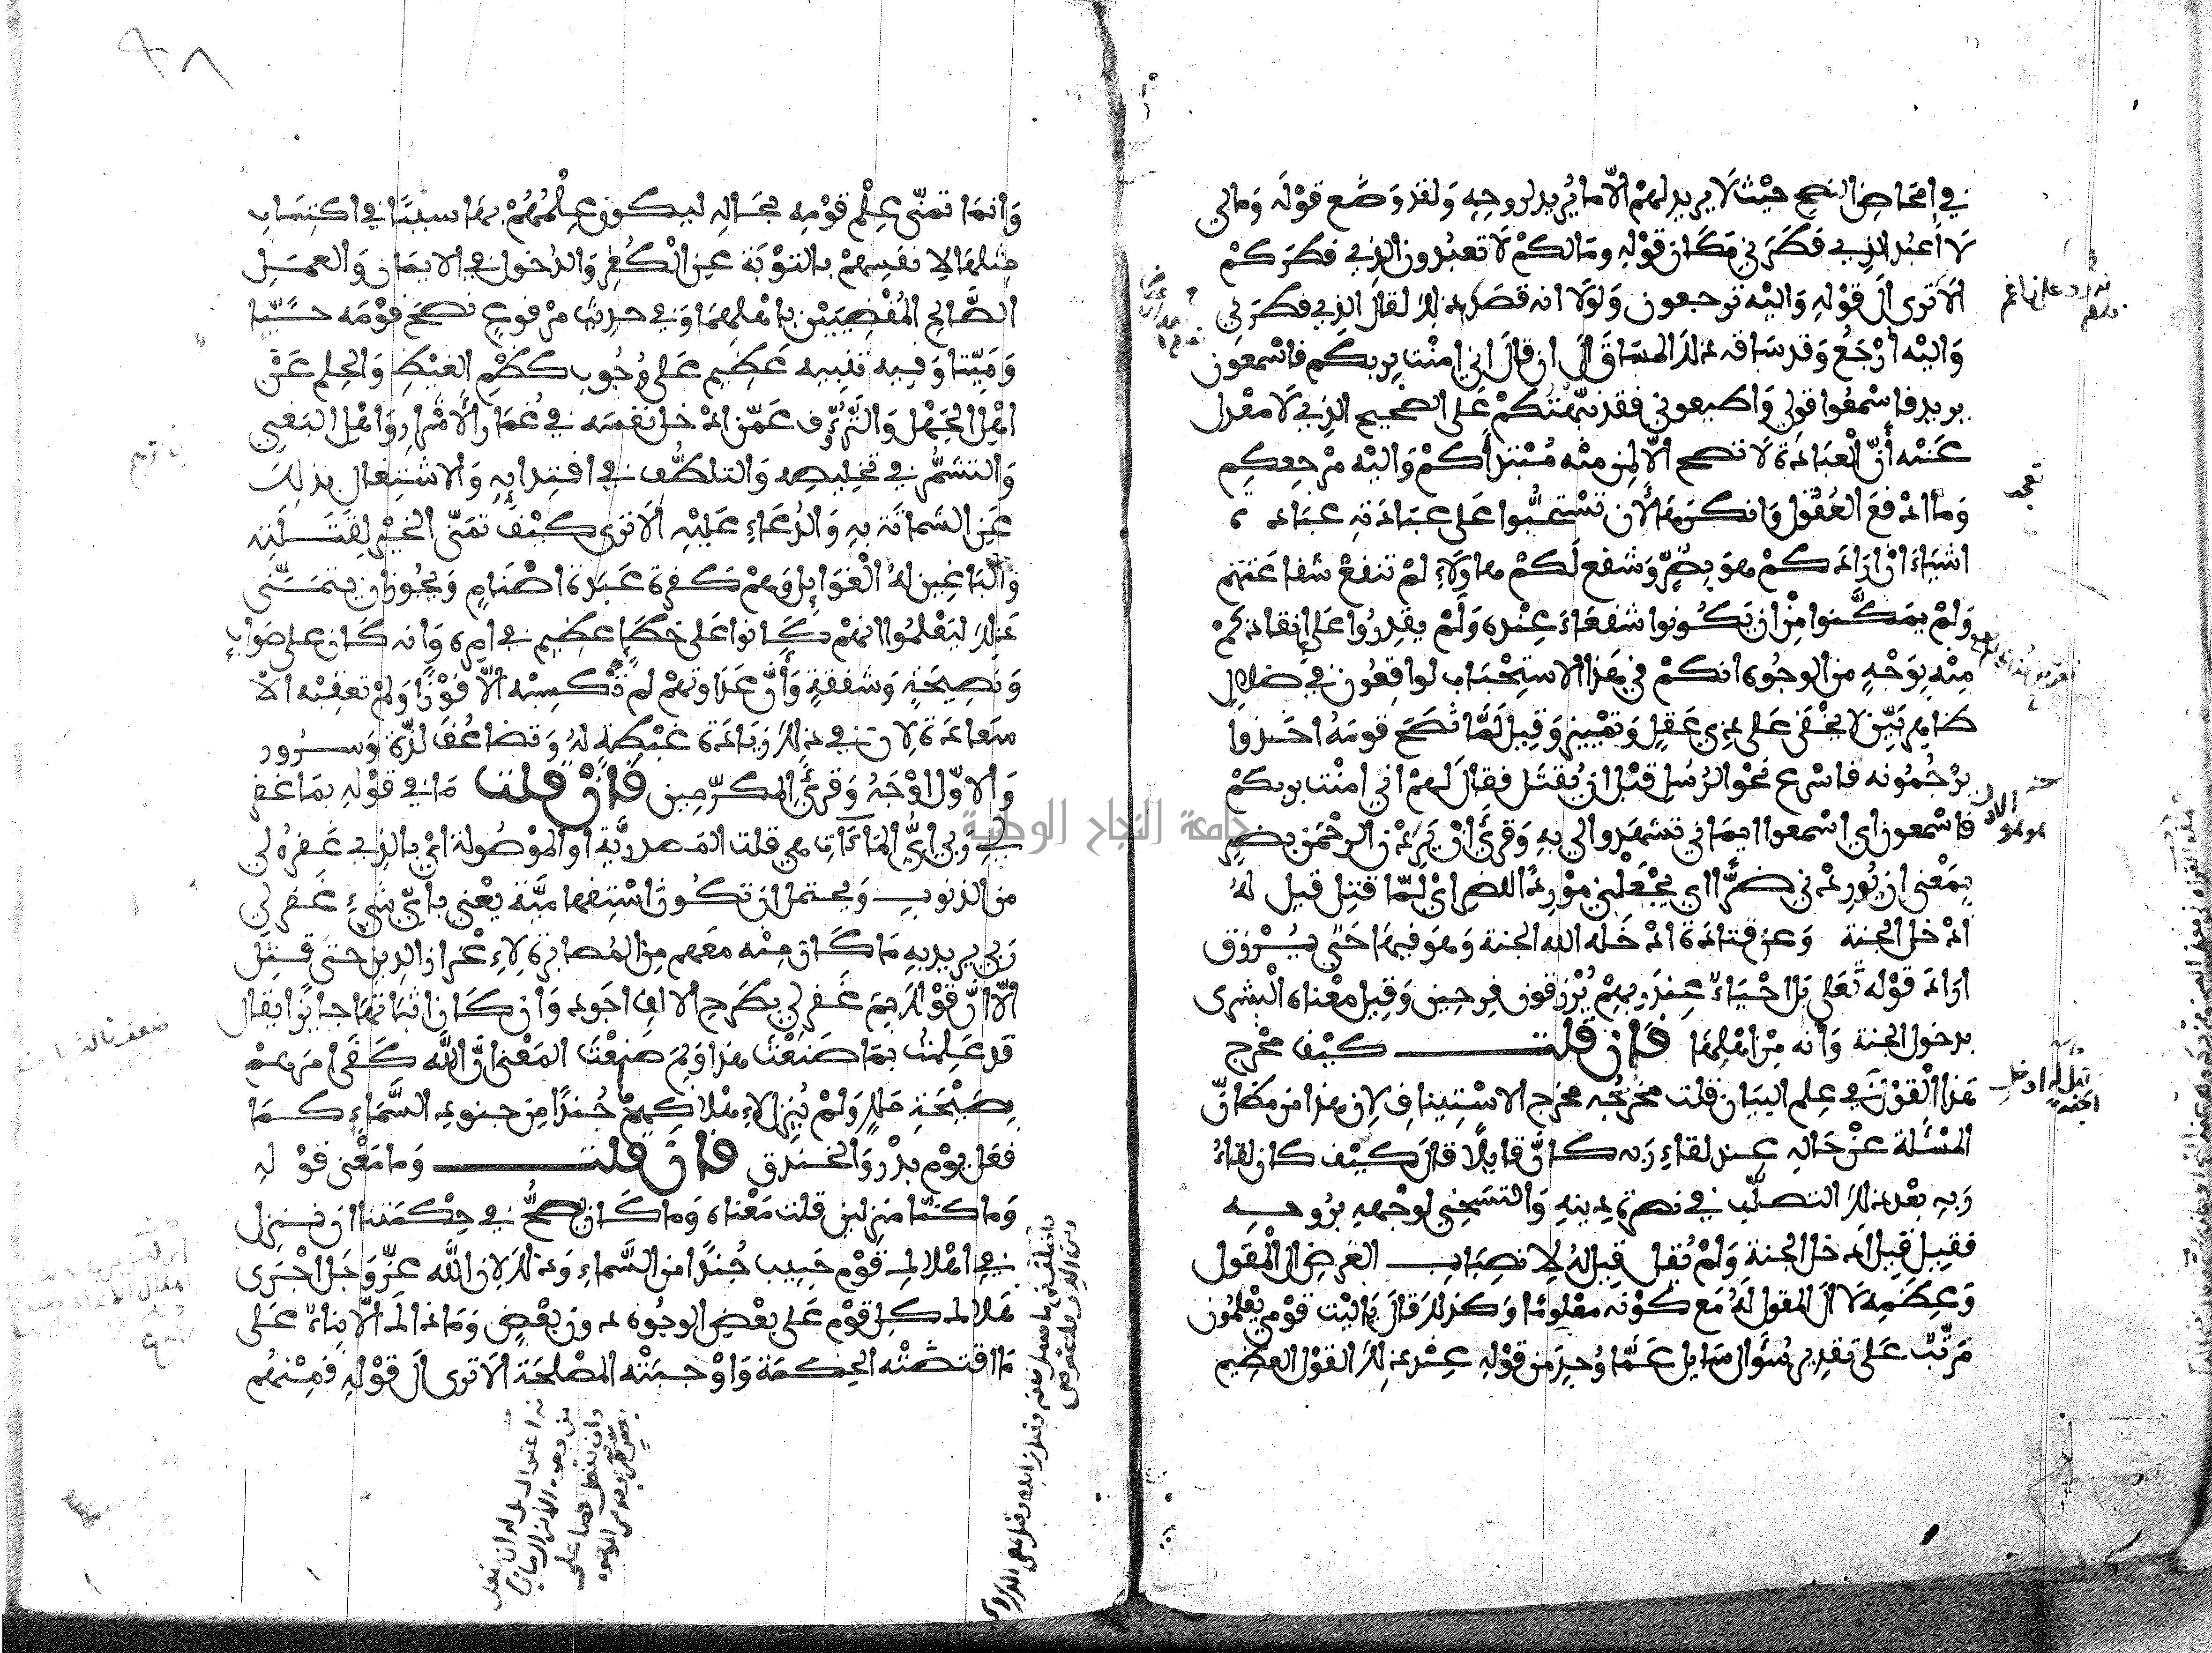 في امحاض النصح حيث لا يريد لهم الا ما يريد لروحه ولقد وضع قوله ومالي
لا اعبد الذي فطرني مكان قوله ومالكم لا تعبدون الذي فطركم
الا ترى الى قوله واليه ترجعون ولولا انه قصد ذلك لقال الذي فطرني
واليه ارجع وقد ساقه ذلك المساق الى ان قال اني امنت بربكم فاسمعون
يريد فاسمعوا قولي واطيعوني فقد نبهتكم على الصحيح الذي لا معدل
عنه أن العبادة لا تصح الا لمن منه مبتدأكم واليه مرجعكم
وما ادفع العقول وانكرها لأن تستحبوا على عبادته عبادة
اشياء ان ارادكم هو بضر وشفع لكم هاولاء لم تنفع شفاعتهم
ولم يمكنوا من ان يكونوا شفعاء عنده ولم يقدروا على انقاذكم
منه بوجه من الوجوه انكم في هذا الاستحباب لواقعون في ضلال
ظاهر بين لا يخفى على ذي عقل وتمييز وقيل لما نصح قومه اخذوا
يرجمونه فاسرع نحو الرسل قبل ان يقتل فقال لهم اني امنت بربكم
فاسمعون اي اسمعوا ايماني تشهدوا لي به وقرئ ان يردن الرحمن بضر
بمعنى ان يوردني ضرا اي يجعلني موردا للضر اي لما قتل قيل له
ادخل الجنة وعن قتادة ادخله الله الجنة وهو فيها حي يرزق
اراد قوله تعلى بل احياء عند ربهم يرزقون فرحين وقيل معناه البشرى
بدخول الجنة وانه من اهلها فان قلت كيف مخرج
هذا القول في علم البيان قلت مخرجه مخرج الاستيناف لان هذا من مظان
المسئلة عن حاله عند لقاء ربه كان قايلا قال كيف كان لقاء
ربه بعد ذلك التصلب في نصرة دينه والتسخي لوجهه بروحه
فقيل قيل ادخل الجنة ولم يقل قيل له لانصباب الغرض الى المقول
وعظمه لا الى المقول له مع كونه معلوما وكذلك قال ياليت قومي يعلمون
مرتب على تقدير سؤال سايل عما وجد من قوله عند ذلك القول العظيم
٤٨
وانما تمنى علم قومه بحاله ليكون علمهم بها سببا في اكتساب
مثلها لانفسهم بالتوبة عن الكفر والدخول في الايمان والعمل
الصالح المفضيين باهلهما وفي حديث مرفوع نصح قومه حيا
وميتا وفيه تنبيه عظيم على وجوب كظم الغيظ والحلم عن
اهل الجهل والترؤف عمن ادخل نفسه في غمار الأشرار واهل البغي
والتشمر في تخليصه والتلطف في افتدايه والاشتغال بذلك
عن الشماتة به والدعاء عليه الا ترى كيف تمنى الخير لقتلته
والباغين له الغوايل وهم كفرة عبدة اصنام ويجوز ان يتمنى
ذلك ليعلموا انهم كانوا على خطا عظيم في امره وانه كان على صواب
ونصيحة وشفقة وأن عداوتهم لم تكسبه الا فوزا ولم تعقبه الا
سعادة لان في ذلك زيادة غبطة له وتضاعف لذة وسرور
والاول اوجه وقرئ المكرمين فان قلت ما في قوله بما غفر
لي ربي اي الماءات هي قلت المصدرية او الموصولة اي بالذي غفره لي
من الذنوب ويحتمل ان تكون استفهامية يعني باي شيء غفر لي
ربي يريد به ما كان منه معهم من المصابرة لاعزاز الدين حتى قتل
الا ان قولك بم غفر لي بطرح الالف اجود وان كان اثباتها جايزا يقال
قد علمت بما صنعت هذا وبم صنعت المعنى ان الله كفى امرهم
بصيحة ملك ولم ينزل لاهلاكهم جندا من جنود السماء كما
فعل يوم بدر والخندق فان قلت وما معنى قوله
وما كنا منزلين قلت معناه وما كان يصح في حكمتنا ان ننزل
في اهلاك قوم حبيب جندا من السماء وذلك لان الله عز وجل اجرى
هلاك كل قوم على بعض الوجوه دون بعض وما ذاك الا بناء على
ما اقتضته الحكمة واوجبته المصلحة الا ترى الى قوله فمنهم
جامعة النجاح الوطنية